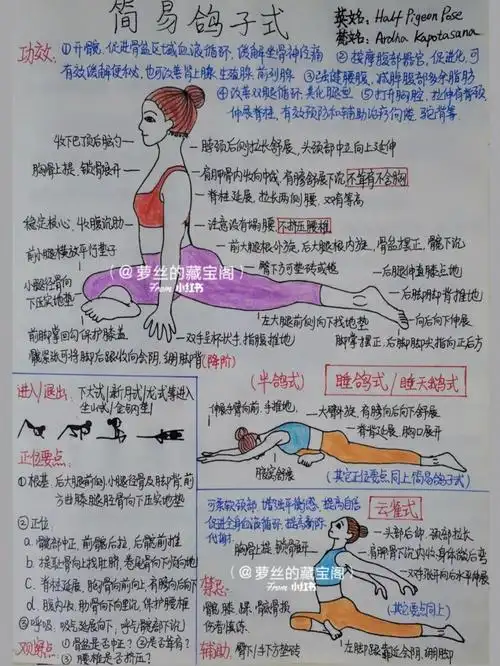 简易鸽子式
英名: Half Pigeon Pose
梵名: Ardha Kapotasana
功效: ①开髋,促进骨盆区域血液循环,缓解坐骨神经痛 ②按摩腹部器官,促进消化,可
有效缓解便秘,也可改善肾上腺、生殖腺、前列腺 ③强健腰腹,减脾腹部多余脂肪
④改善双腿循环,美化腿型 ⑤打开胸腔,拉伸脊椎
伸展脊柱,有效预防和辅助治疗佝偻、驼背等
收下巴顶后脑勺
脖颈后侧拉长舒展,头颈部中正向上延伸
胸骨上提,锁骨展开
肩膀舒展下沉 不耸肩不含胸
脊柱延展,拉长两侧腰
稳定核心,收腹
注意没有塌腰 不挤压腰椎
前小腿横放平行垫子
前大腿根外旋,后大腿根内旋,骨盆摆正,髋部下沉
@萝丝的藏宝阁
From 小红书
小腿胫骨向下压实地垫
臀下方可垫砖或毯
后腿伸直膝点地
后脚脚背推地
向后向下伸展
前脚掌回勾保护膝盖
双手呈杯状手,指腹推地
左大腿前侧向下找地垫
脚掌摆正,后脚脚尖指向正后方
髋紧张可将脚后跟收向会阴,绷脚背(降阶)
进入/退出: 下犬式/新月式/龙式等进入
(半鸽式)
睡鸽式/睡天鹅式
伸展手臂向前,手推地
大臂外旋,肩膀向后向下舒展
脊背延展,胸口展开
腋窝舒展
(其它正位要点同上简易鸽子式)
正位要点:
①根基: 后大腿前侧,小腿胫骨及脚背,前
方曲膝腿胫骨向下压实地垫
②正位:
a. 髋部中正,前髋后拉,后髋前推
b. 耻骨向上找肚脐,卷尾骨向下找向地
c. 脊柱延展,胸骨向前向上,肩膀向后向下
d. 腹内收,肋骨向下内沉,保护腰椎
③呼吸: 吸气延展向下,呼气髋部下沉
观察点 ①骨盆是否中正? ②是否耸肩?
③腰椎是否挤压?
可柔软颈部,增强平衡感,提高自信
促进全身血液循环,提高新陈
代谢
云雀式
头部后仰,颈部拉长
胸骨上提 锁骨展开
肩胛骨下沉内收,身体微后弯
双手张开向后水平伸展
@萝丝的藏宝阁
From 小红书
(其它要点同上)
禁忌:
髋、膝、踝、骶骨损
伤者慎练
辅助: 臀下/手下方垫砖
左脚跟靠近会阴,绷脚